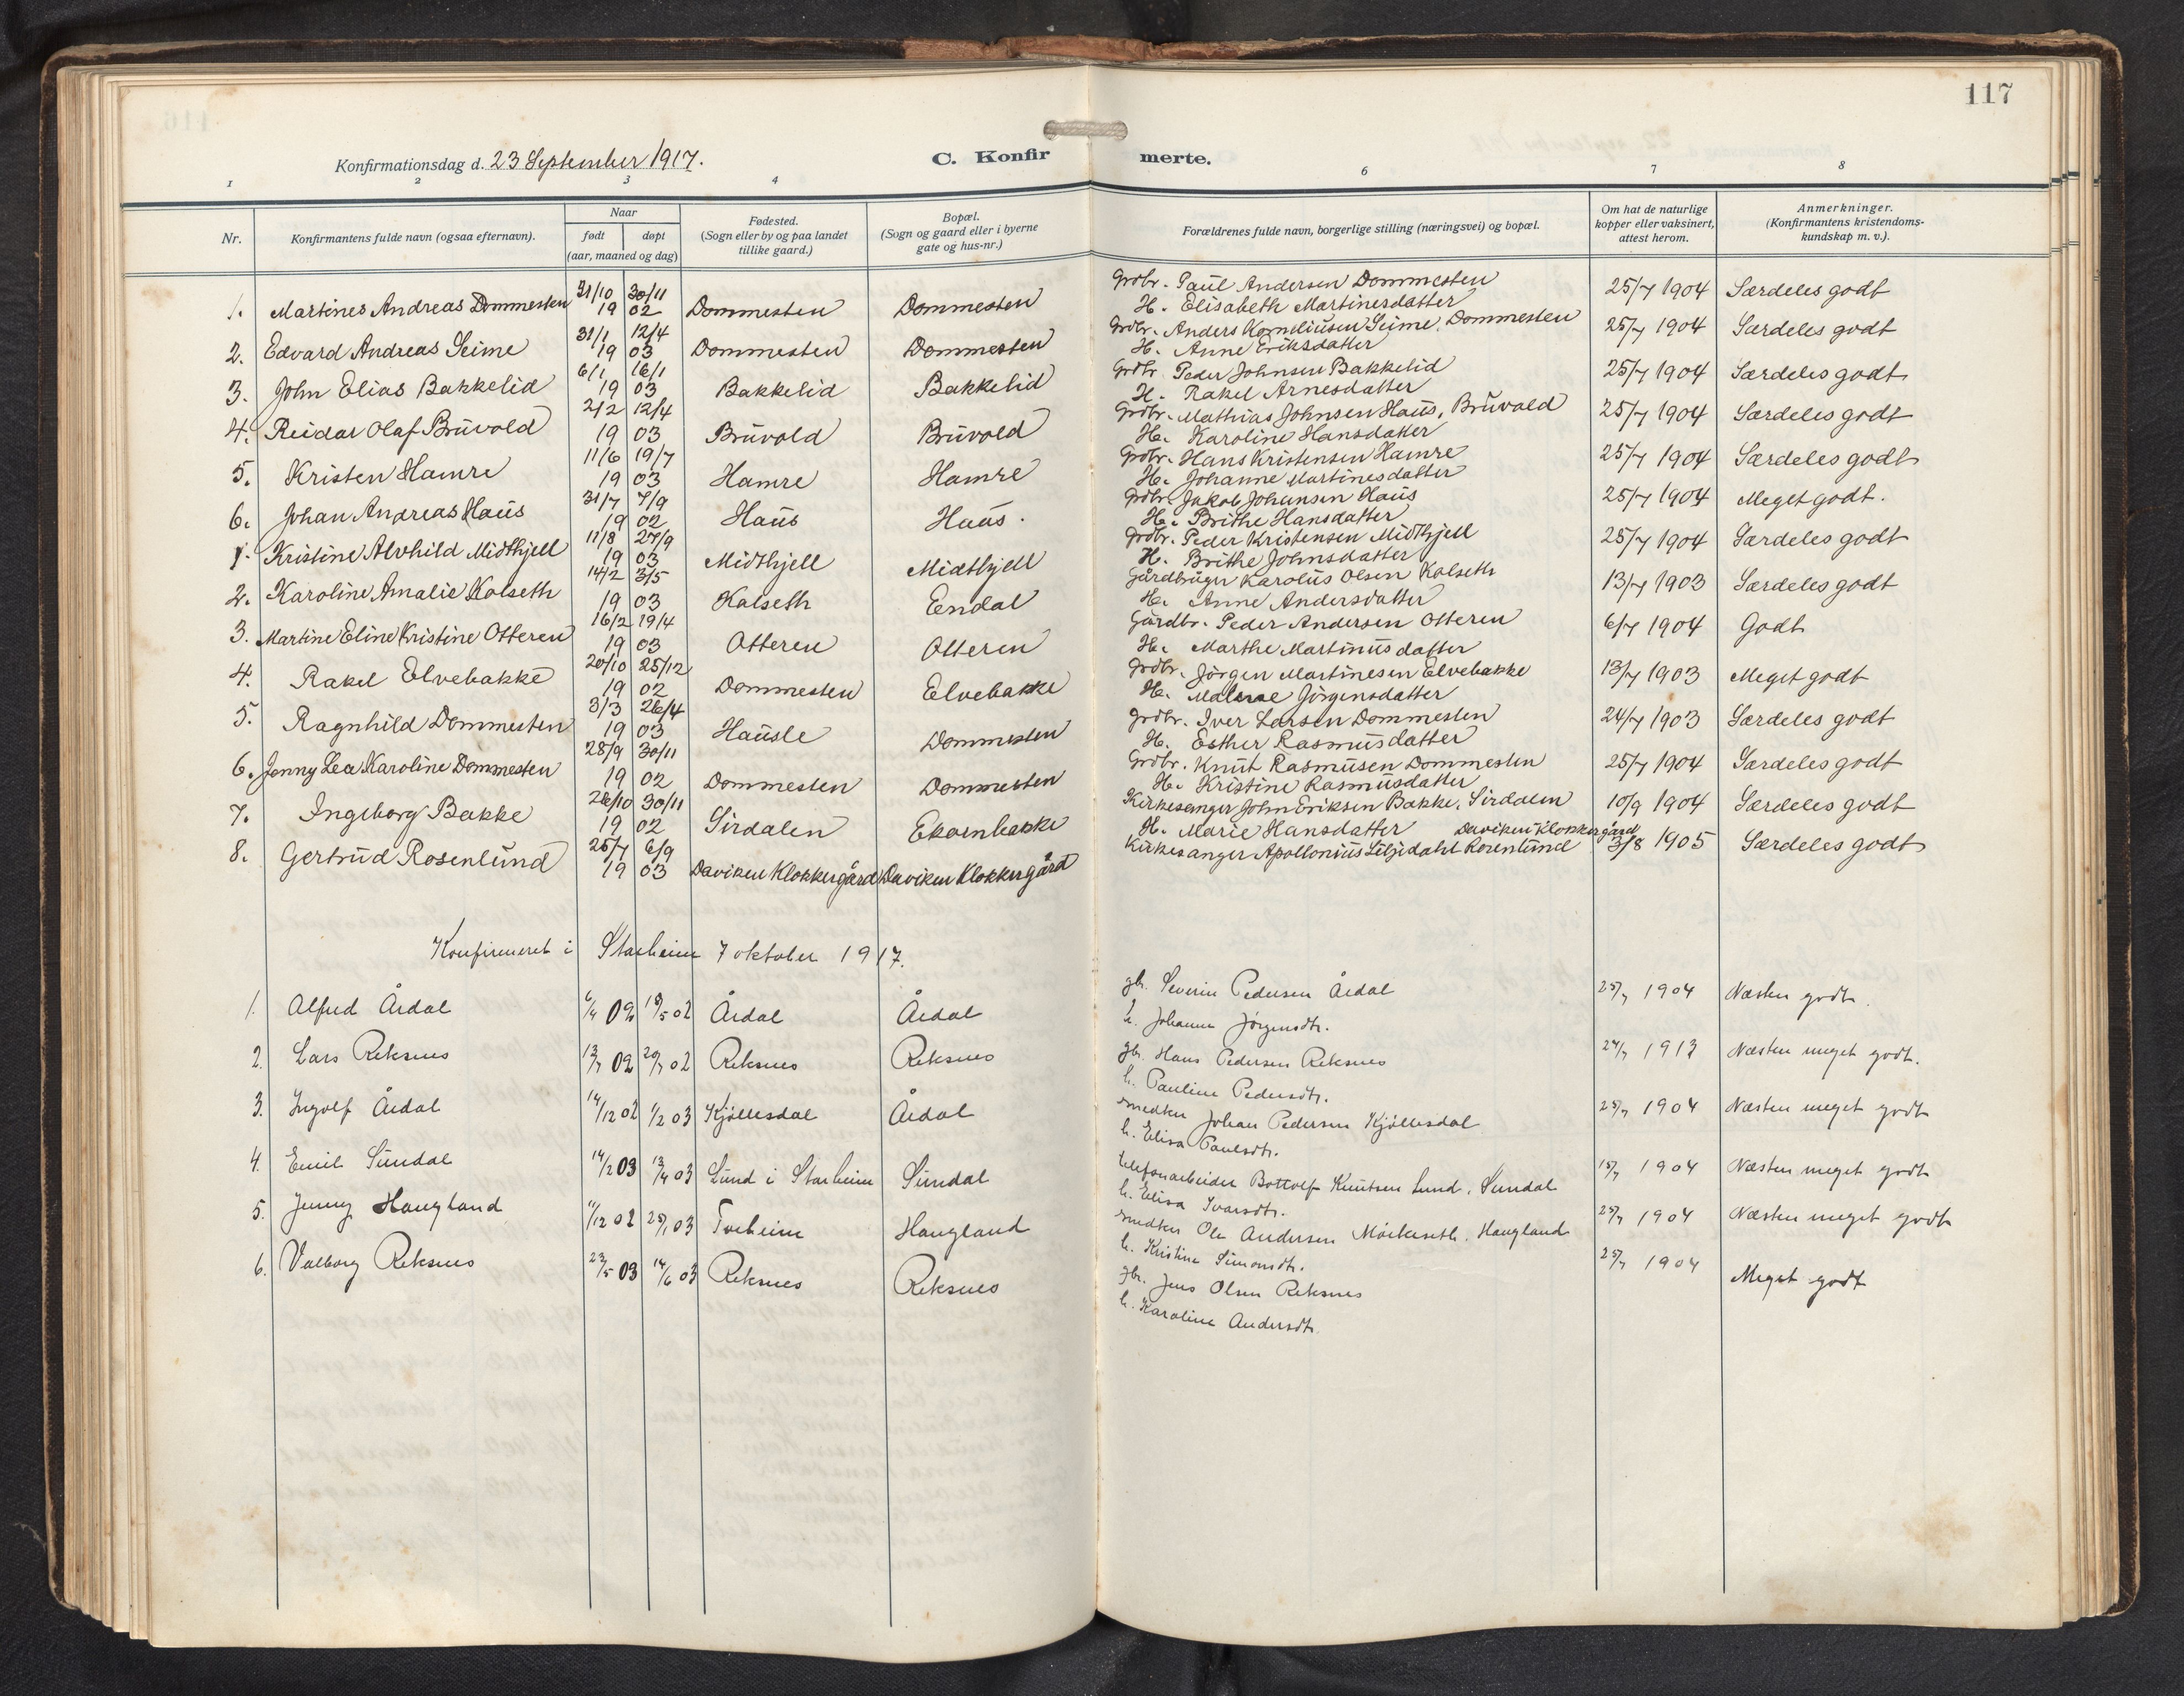 117
Konfirmationsdag d. 23 September 1917.
C. Konfirmerte.
1 2 3 4 6 7 8
Nr.
Konfirmantens fulde navn (ogsaa efternavn).
Naar
født døpt
(aar, maaned og dag)
Fødested.
(Sogn eller by og paa landet
tillike gaard.)
Bopæl.
(Sogn og gaard eller i byerne
gate og hus-nr.)
Forældrenes fulde navn, borgerlige stilling (næringsvei) og bopæl.
Om hat de naturlige
kopper eller vaksinert,
attest herom.
Anmerkninger.
(Konfirmantens kristendoms-
kundskap m. v.).
1. Martines Andreas Dommesten 31/10 1902 30/11 Dommesten Dommesten Grdbr. Paul Andersen Dommesten 25/7 1904 Særdeles godt
H. Elisabeth Martinesdatter
2. Edvard Andreas Seime 31/1 12/4 1903 Dommesten Dommesten Grdbr. Anders Korneliusen Seime, Dommesten 25/7 1904 Særdeles godt
H. Anne Eriksdatter
3. John Elias Bakkelid 6/1 16/1 1903 Bakkelid Bakkelid Grdbr Peder Johnsen Bakkelid 25/7 1904 Særdeles godt
H. Rakel Arnesdatter
4. Reidar Olaf Brüvold 2/2 12/4 1903 Brüvold Brüvold Grdbr. Mathias Johnsen Haüs, Brüvold 25/7 1904 Særdeles godt
H. Karoline Hansdatter
5. Kristen Hamre 11/6 19/7 1903 Hamre Hamre Grdbr. Hans Kristensen Hamre 25/7 1904 Særdeles godt
H. Johanne Martinesdatter
6. Johan Andreas Haüs 31/7 7/9 1902 Haüs Haüs. Grdbr Jakob Johansen Haüs 25/7 1904 Meget godt.
H. Brithe Hansdatter
1. Kristine Alvhild Midthjell 11/8 27/9 1903 Midthjell Midthjell Grdbr. Peder Kristensen Midthjell 25/7 1904 Særdeles godt
H. Brithe Johnsdatter
2. Karoline Amalie Kolseth 14/2 3/5 1903 Kolseth Endal Gårdbrüger Karolüs Olsen Kolseth 13/7 1903 Særdeles godt
H. Anne Andersdatter
3. Martine Eline Kristine Otteren 16/2 19/4 1903 Otteren Otteren Gårdbr. Peder Andersen Otteren 6/7 1904 Godt
H. Marthe Martinüsdatter
4. Rakel Elvebakke 20/10 25/12 1902 Dommesten Elvebakke Grdbr. Jörgen Martinesen Elvebakke 13/7 1903 Meget godt
H. Malene Jörgensdatter
5. Ragnhild Dommesten 3/3 26/4 1903 Haüsle Dommesten Grdbr. Iver Larsen Dommesten 24/7 1903 Særdeles godt
H. Esther Rasmüsdatter
6. Jenny Lea Karoline Dommesten 28/9 30/11 1902 Dommesten Dommesten Grdbr. Knüt Rasmüsen Dommesten 25/7 1904 Særdeles godt
H. Kristine Rasmüsdatter
7. Ingeborg Bakke 26/10 30/11 1902 Sirdalen Ekornbakke Kirkesanger John Eriksen Bakke, Sirdalen 10/9 1904 Særdeles godt
H. Marie Hansdatter
8. Gertrüd Rosenlünd 25/7 6/9 1903 Daviken Klokkergård Daviken Klokkergård Kirkesanger Apollonius Liljedahl Rosenlünd Daviken Klokkergård 3/8 1905 Særdeles godt
Konfirmeret i Starheim 7 oktober 1917.
1. Alfred Årdal 6/4 02 18/5 02 Årdal Årdal gb. Severin Pedersen Årdal 25/7 1904 Næsten godt.
h. Johanne Jørgensdtr.
2. Lars Reksnes 13/7 02 20/7 02 Reksnes Reksnes gb. Hans Pedersen Reksnes 24/7 1913 Næsten meget godt.
h. Pauline Pedersdtr.
3. Ingolf Årdal 14/12 02 1/2 03 Kjöllesdal Årdal smedken Johan Pedersen Kjöllesdal 25/7 1904 Næsten meget godt
h. Elisa Paulsdtr.
4. Emil Sundal 14/2 03 13/4 03 Lund i Starheim Sundal telefonarbeider Bottolf Knutsen Lund, Sundal 15/7 1904 Næsten meget godt
h. Elisa Ivarsdtr.
5. Jenny Haugland 11/12 02 25/1 03 Torheim Haugland smedken Ole Andersen Mörkeseth, Haugland 25/7 1904 Næsten meget godt
h. Kristine Simonsdtr.
6. Valborg Reksnes 23/5 03 14/6 03 Reksnes Reksnes gbr. Jens Olsen Reksnes 25/7 1904 Meget godt
h. Karoline Andersdtr.